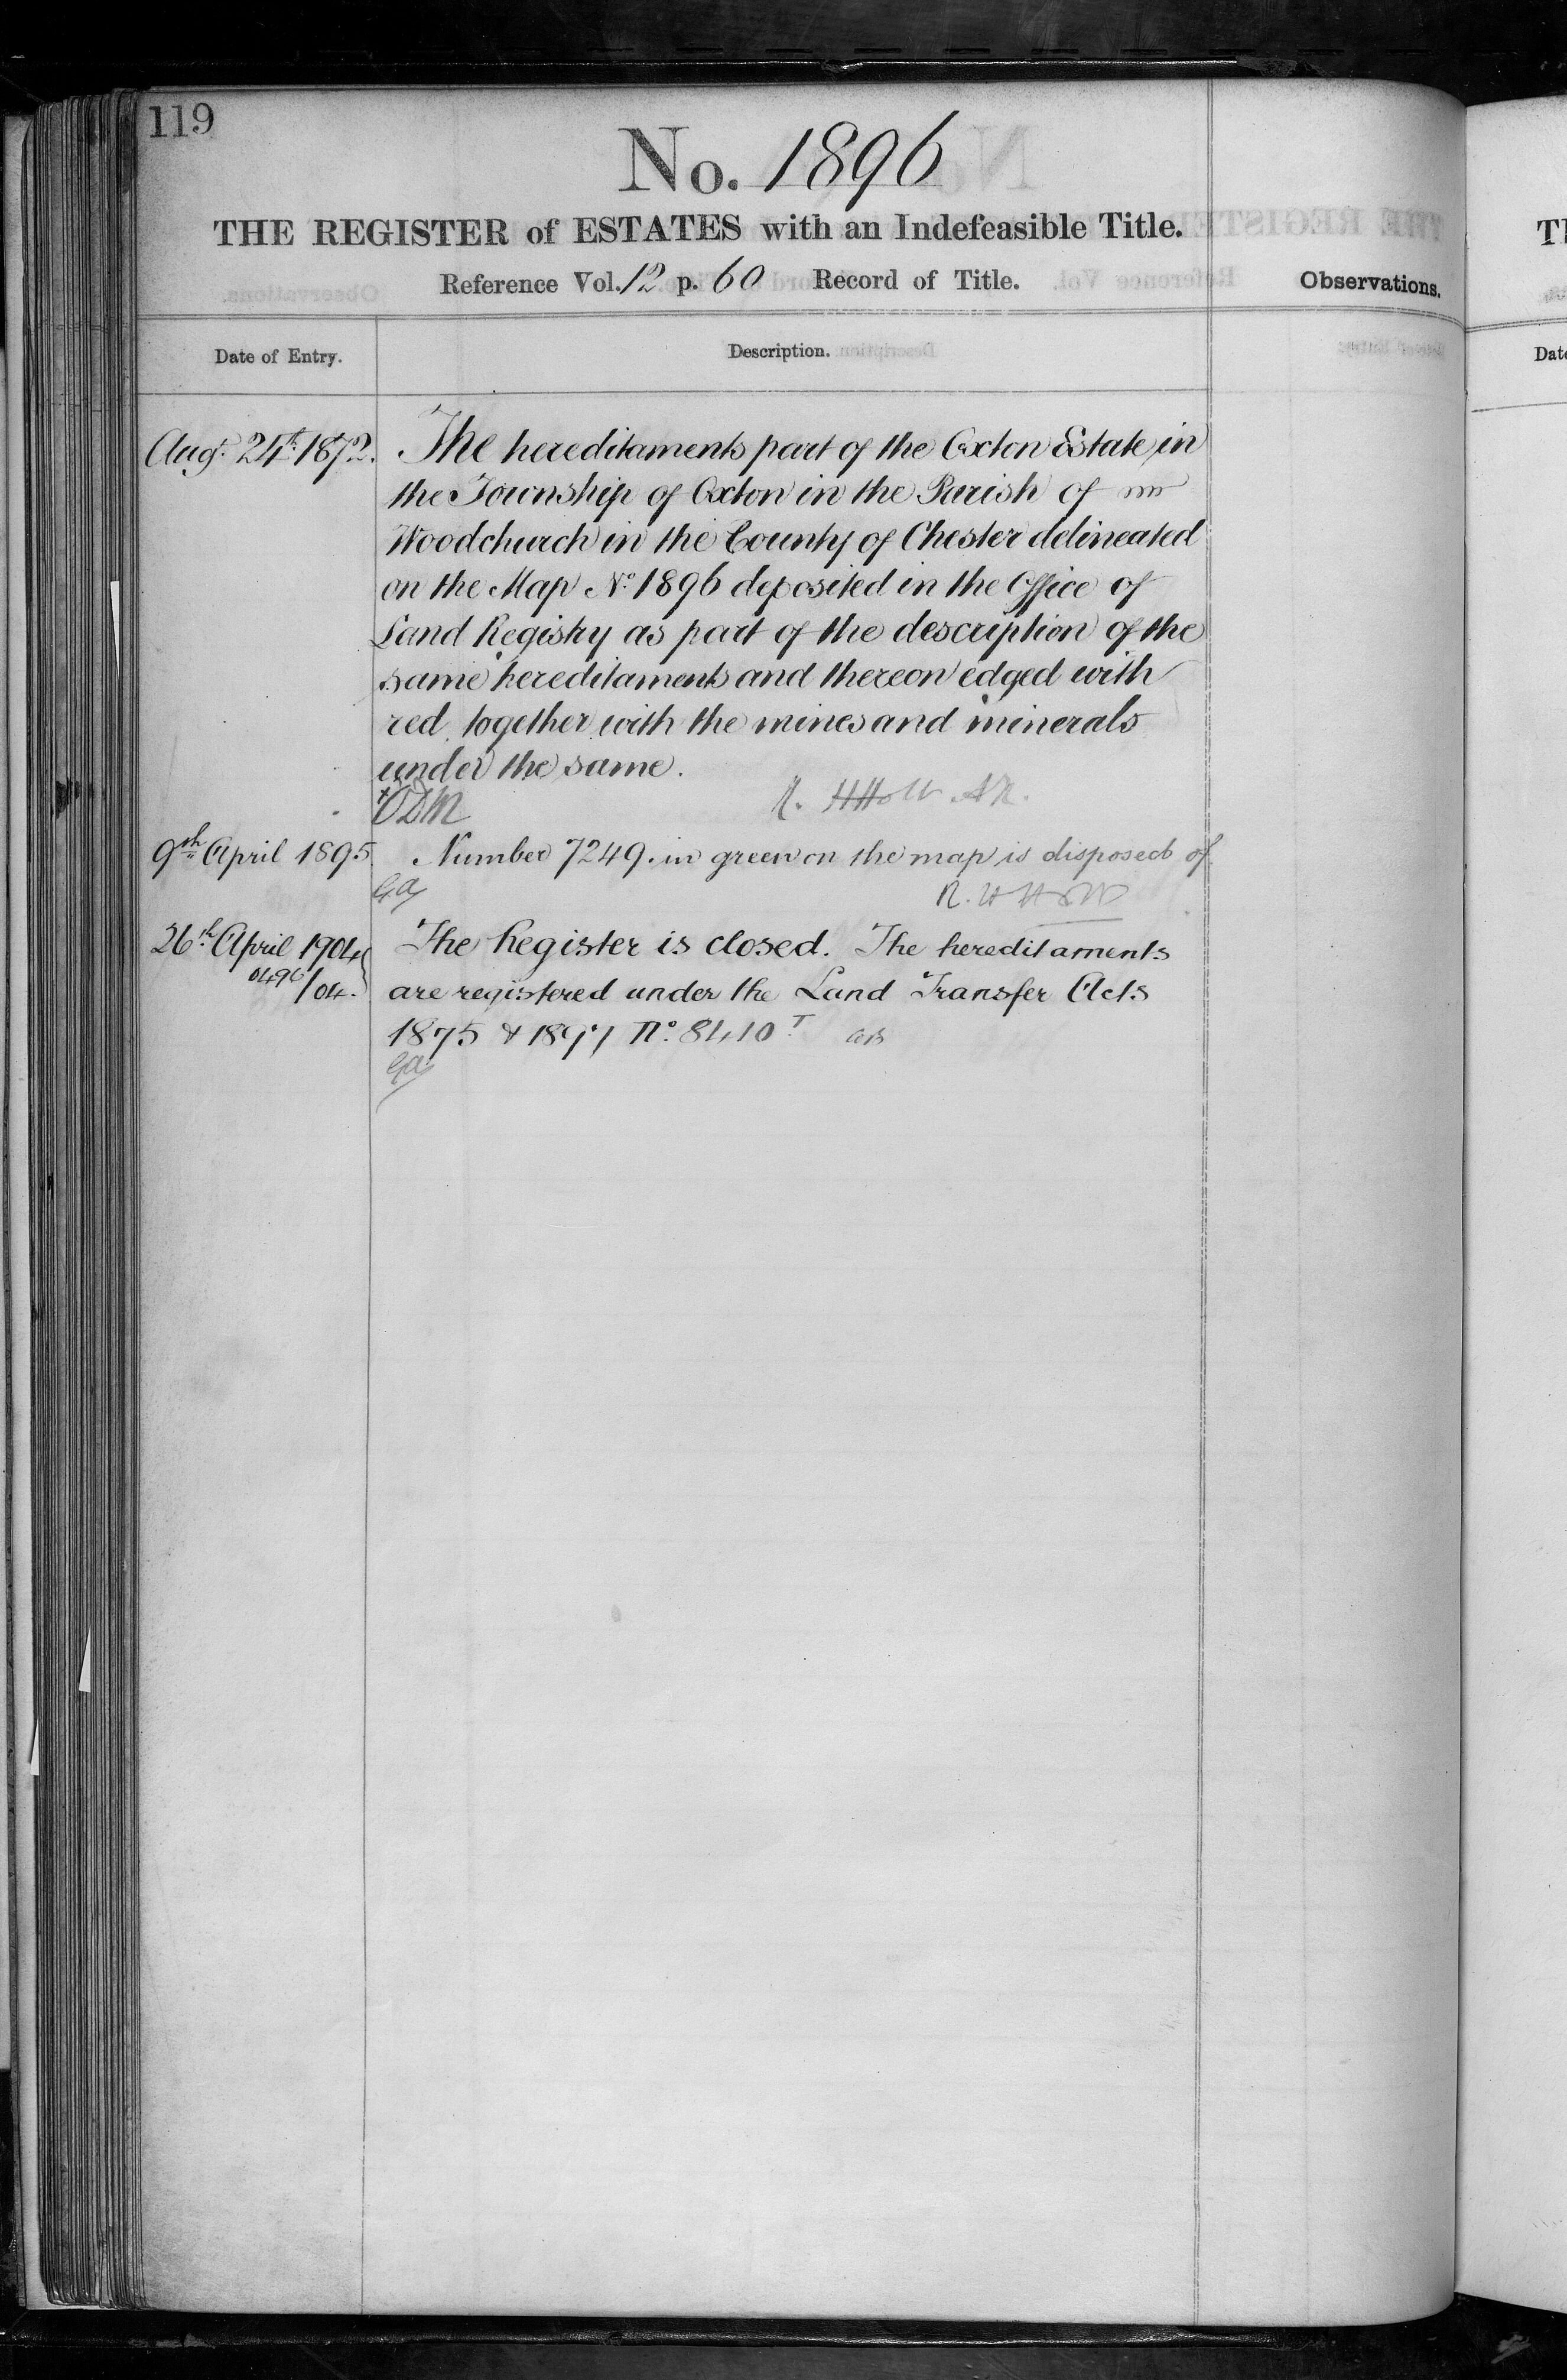 119
No. 1896
THE REGISTER of ESTATES with an Indefeasible Title.
Reference Vol. 12 p. 60 Record of Title.
Observations.
Date of Entry.
Description.
Augt. 24th 1872.
The hereditaments part of the Oxton Estate in
the Township of Oxton in the Parish of
Woodchurch in the County of Chester delineated
on the Map No. 1896 deposited in the Office of
Land Registry as part of the description of the
same hereditaments and thereon edged with
red together with the mines and minerals
under the same.
R. H Holt AR.
9th April 1895
Number 7249 in green on the map is disposed of
26th April 1904
0496/04.
The Register is closed. The hereditaments
are registered under the Land Transfer Acts
1875 & 1897 No. 8410 T